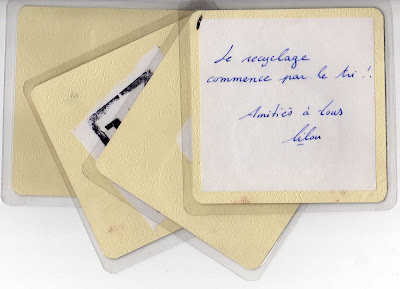 Le recyclage
commence par le tri !.
Amitiés à tous
Lilou